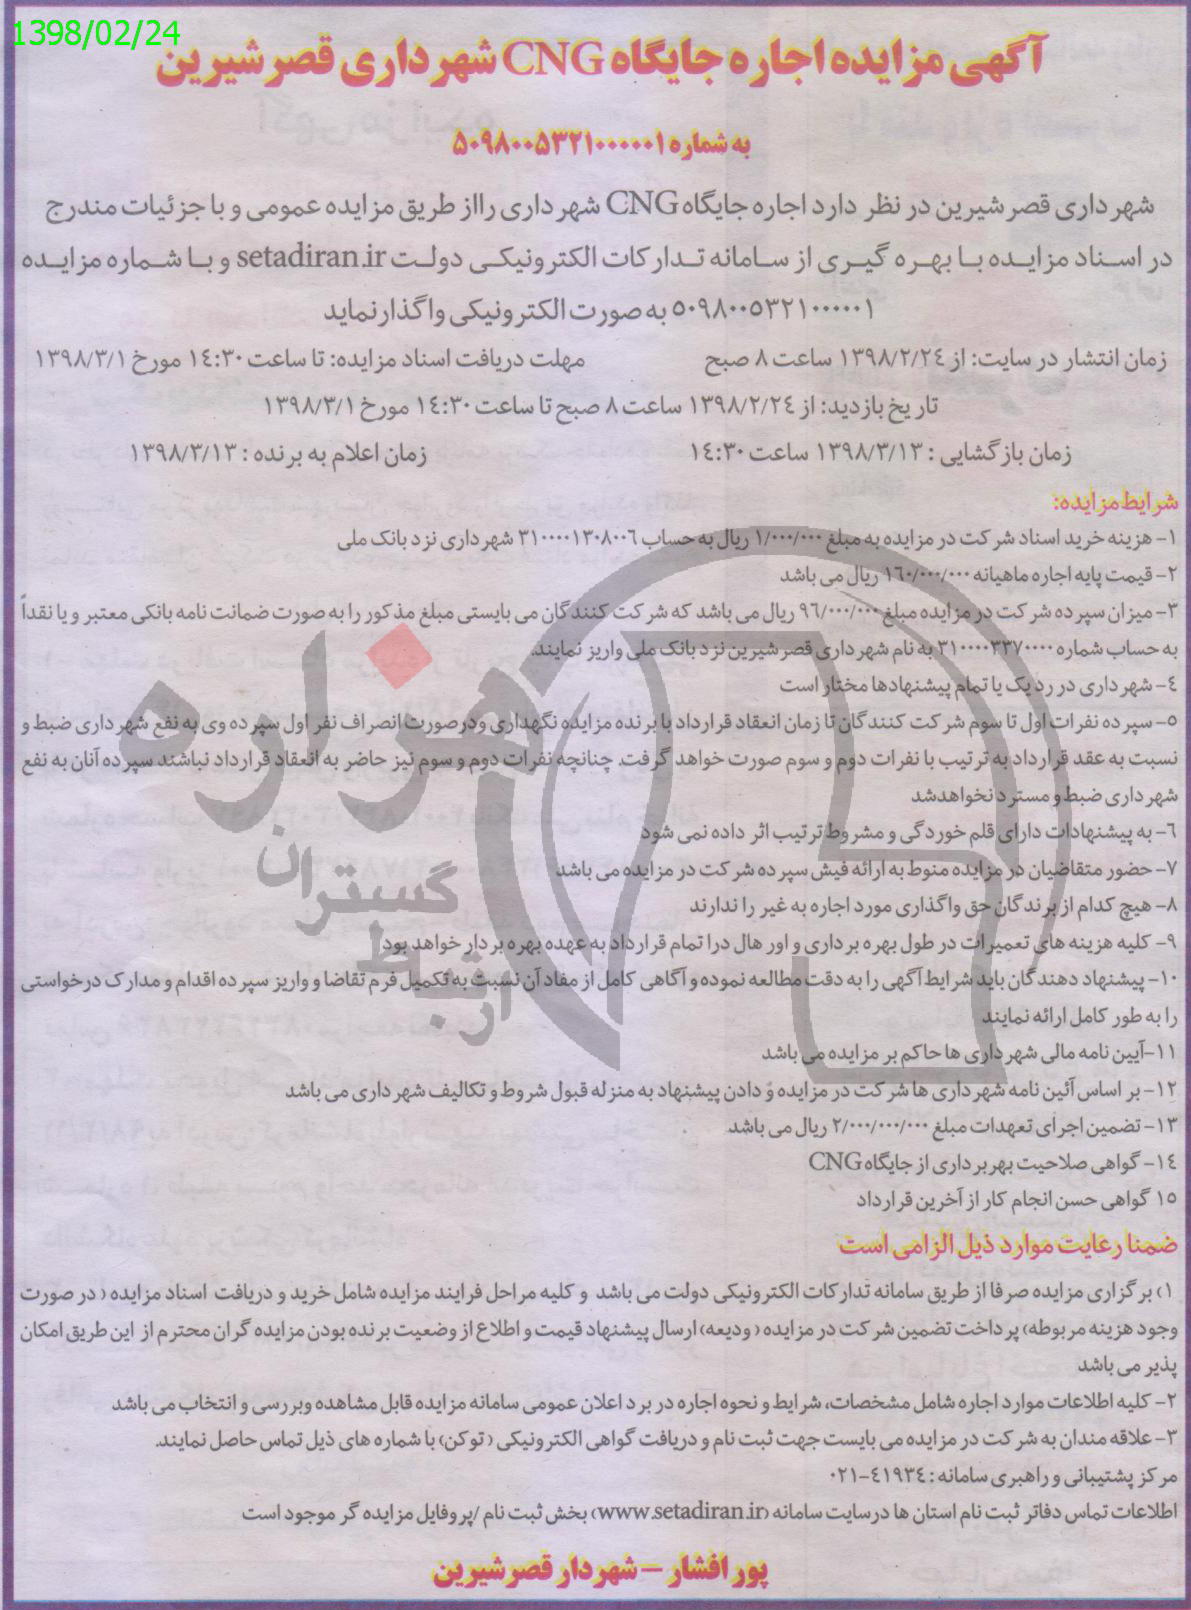 1398/02/24
آگهی مزایده اجاره جایگاه CNG شهرداری قصرشیرین
به شماره ۵۰۹۸۰۰۵۳۲۱۰۰۰۰۰۱
شهرداری قصرشیرین در نظر دارد اجاره جایگاه CNG شهرداری رااز طریق مزایده عمومی و با جزئیات مندرج
در اسناد مزایده با بهره گیری از سامانه تدارکات الکترونیکی دولت setadiran.ir و با شماره مزایده
۵۰۹۸۰۰۵۳۲۱۰۰۰۰۰۱ به صورت الکترونیکی واگذارنماید
زمان انتشار در سایت: از ۱۳۹۸/۲/۲٤ ساعت ۸ صبح مهلت دریافت اسناد مزایده: تا ساعت ۱٤:۳۰ مورخ ۱۳۹۸/۳/۱
تاریخ بازدید: از ۱۳۹۸/۲/۲٤ ساعت ۸ صبح تا ساعت ۱٤:۳۰ مورخ ۱۳۹۸/۳/۱
زمان بازگشایی : ۱۳۹۸/۳/۱۳ ساعت ۱٤:۳۰ زمان اعلام به برنده : ۱۳۹۸/۳/۱۳
شرایط مزایده:
۱- هزینه خرید اسناد شرکت در مزایده به مبلغ ۱/۰۰۰/۰۰۰ ریال به حساب ۳۱۰۰۰۰۱۳۰۸۰۰٦ شهرداری نزد بانک ملی
۲- قیمت پایه اجاره ماهیانه ۱٦۰/۰۰۰/۰۰۰ ریال می باشد
۳- میزان سپرده شرکت در مزایده مبلغ ۹٦/۰۰۰/۰۰۰ ریال می باشد که شرکت کنندگان می بایستی مبلغ مذکور را به صورت ضمانت نامه بانکی معتبر و یا نقداً
به حساب شماره ۳۱۰۰۰۰۳۳۷۰۰۰۰ به نام شهرداری قصرشیرین نزد بانک ملی واریز نمایند.
٤- شهرداری در رد یک یا تمام پیشنهادها مختار است
۵- سپرده نفرات اول تا سوم شرکت کنندگان تا زمان انعقاد قرارداد با برنده مزایده نگهداری ودرصورت انصراف نفر اول سپرده وی به نفع شهرداری ضبط و
نسبت به عقد قرارداد به ترتیب با نفرات دوم و سوم صورت خواهد گرفت. چنانچه نفرات دوم و سوم نیز حاضر به انعقاد قرارداد نباشند سپرده آنان به نفع
شهرداری ضبط و مسترد نخواهدشد
٦- به پیشنهادات دارای قلم خوردگی و مشروط ترتیب اثر داده نمی شود
۷- حضور متقاضیان در مزایده منوط به ارائه فیش سپرده شرکت در مزایده می باشد
۸- هیچ کدام از برندگان حق واگذاری مورد اجاره به غیر را ندارند
۹- کلیه هزینه های تعمیرات در طول بهره برداری و اور هال درا تمام قرارداد به عهده بهره بردار خواهد بود
۱۰- پیشنهاد دهندگان باید شرایط آگهی را به دقت مطالعه نموده و آگاهی کامل از مفاد آن نسبت به تکمیل فرم تقاضا و واریز سپرده اقدام و مدارک درخواستی
را به طور کامل ارائه نمایند
۱۱-آیین نامه مالی شهرداری ها حاکم بر مزایده می باشد
۱۲- بر اساس آئین نامه شهرداری ها شرکت در مزایده و دادن پیشنهاد به منزله قبول شروط و تکالیف شهرداری می باشد
۱۳- تضمین اجرای تعهدات مبلغ ۲/۰۰۰/۰۰۰/۰۰۰ ریال می باشد
۱٤- گواهی صلاحیت بهربرداری از جایگاه CNG
۱۵ گواهی حسن انجام کار از آخرین قرارداد
ضمنا رعایت موارد ذیل الزامی است
۱) برگزاری مزایده صرفا از طریق سامانه تدارکات الکترونیکی دولت می باشد و کلیه مراحل فرایند مزایده شامل خرید و دریافت اسناد مزایده ( در صورت
وجود هزینه مربوطه) پرداخت تضمین شرکت در مزایده ( ودیعه) ارسال پیشنهاد قیمت و اطلاع از وضعیت برنده بودن مزایده گران محترم از این طریق امکان
پذیر می باشد
۲- کلیه اطلاعات موارد اجاره شامل مشخصات، شرایط و نحوه اجاره در برد اعلان عمومی سامانه مزایده قابل مشاهده وبررسی و انتخاب می باشد
۳- علاقه مندان به شرکت در مزایده می بایست جهت ثبت نام و دریافت گواهی الکترونیکی ( توکن) با شماره های ذیل تماس حاصل نمایند.
مرکز پشتیبانی و راهبری سامانه : ٤۱۹۳٤-۰۲۱
اطلاعات تماس دفاتر ثبت نام استان ها درسایت سامانه (www.setadiran.ir) بخش ثبت نام /پروفایل مزایده گر موجود است
پور افشار – شهردار قصرشیرین
هزاره
گستران
ارتباط